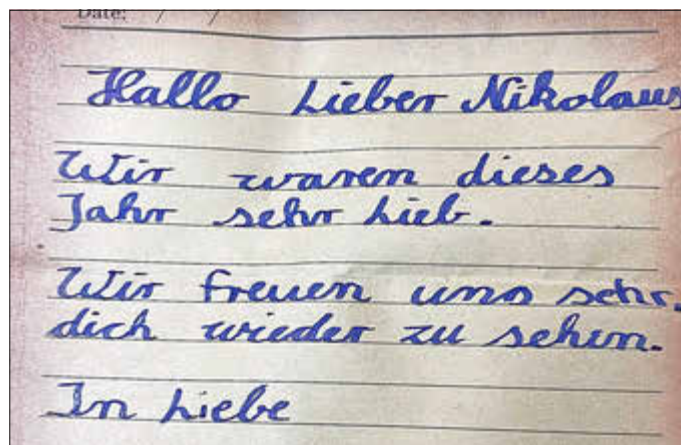 Date: / /
Hallo Lieber Nikolaus
Wir waren dieses
Jahr sehr Lieb.
Wir freuen uns sehr.
dich wieder zu sehen.
In Liebe